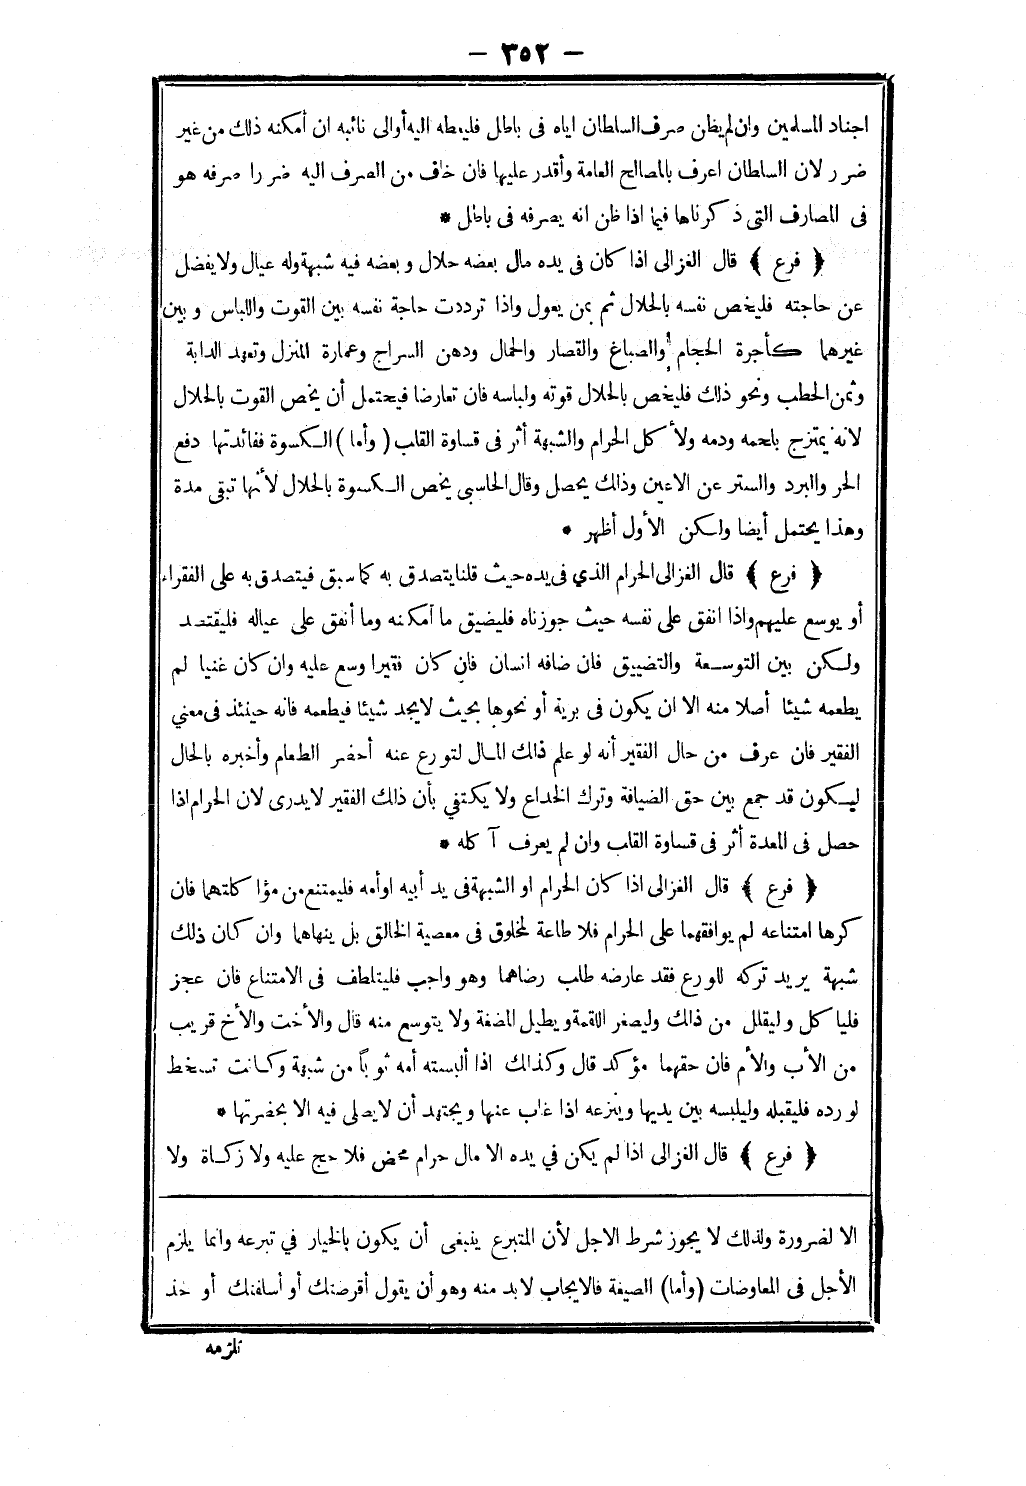 — ٣٥٢ —
اجناد المسلمين وان لم يظن صرف السلطان اياه فى باطل فليعطه اليه أوالى نائبه ان أمكنه ذلك من غير
ضرر لان السلطان اعرف بالمصالح العامة وأقدر عليها فان خاف من الصرف اليه ضررا صرفه هو
فى المصارف التى ذكرناها فيما اذا ظن انه يصرفه فى باطل *
﴿ فرع ﴾ قال الغزالى اذا كان فى يده مال بعضه حلال وبعضه فيه شبهة وله عيال ولايفضل
عن حاجته فليخص نفسه بالحلال ثم بمن يعول واذا ترددت حاجة نفسه بين القوت واللباس وبين
غيرهما كأجرة الحجام والصباغ والقصار والحمال ودهن السراج وعمارة المنزل وتعهد الدابة
وثمن الحطب ونحو ذلك فليخص بالحلال قوته ولباسه فان تعارضا فيحتمل أن يخص القوت بالحلال
لانه يمتزج بلحمه ودمه ولأكل الحرام والشبهة أثر فى قساوة القلب (وأما) الكسوة ففائدتها دفع
الحر والبرد والستر عن الاعين وذلك يحصل وقال المحاسبى يخص الكسوة بالحلال لأنها تبقى مدة
وهذا يحتمل أيضا ولكن الأول أظهر *
﴿ فرع ﴾ قال الغزالى الحرام الذي فى يده حيث قلنا يتصدق به كما سبق فيتصدق به على الفقراء
أو يوسع عليهم واذا انفق على نفسه حيث جوزناه فليضيق ما أمكنه وما أنفق على عياله فليقتصد
وليكن بين التوسعة والتضييق فان ضافه انسان فان كان فقيرا وسع عليه وان كان غنيا لم
يطعمه شيئا أصلا منه الا ان يكون فى برية أو نحوها بحيث لايجد شيئا فيطعمه فانه حينئذ فى معني
الفقير فان عرف من حال الفقير أنه لو علم ذلك المال لتورع عنه أحضر الطعام وأخبره بالحال
ليكون قد جمع بين حق الضيافة وترك الخداع ولا يكتفي بأن ذلك الفقير لايدرى لان الحرام اذا
حصل فى المعدة أثر فى قساوة القلب وان لم يعرف آكله *
﴿ فرع ﴾ قال الغزالى اذا كان الحرام او الشبهة فى يد أبيه اوأمه فليمتنع من مؤاكلتهما فان
كرها امتناعه لم يوافقهما على الحرام فلا طاعة لمخلوق فى معصية الخالق بل ينهاهما وان كان ذلك
شبهة يريد تركه للورع فقد عارضه طلب رضاهما وهو واجب فليتلطف فى الامتناع فان عجز
فليأكل وليقلل من ذلك وليصغر اللقمة ويطيل المضغة ولا يتوسع منه قال والأخت والأخ قريب
من الأب والأم فان حقهما مؤكد قال وكذلك اذا ألبسته أمه ثوباً من شبهة وكانت تسخط
لو رده فليقبله وليلبسه بين يديها وينزعه اذا غاب عنها ويجتهد أن لايصلى فيه الا بحضرتها *
﴿ فرع ﴾ قال الغزالى اذا لم يكن في يده الا مال حرام محض فلا حج عليه ولا زكاة ولا
الا لضرورة ولذلك لا يجوز شرط الاجل لأن المتبرع ينبغى أن يكون بالخيار في تبرعه وانما يلزم
الأجل فى المعاوضات (وأما) الصيغة فالايجاب لابد منه وهو أن يقول أقرضتك أو أسلفتك أو خذ
تلزمه